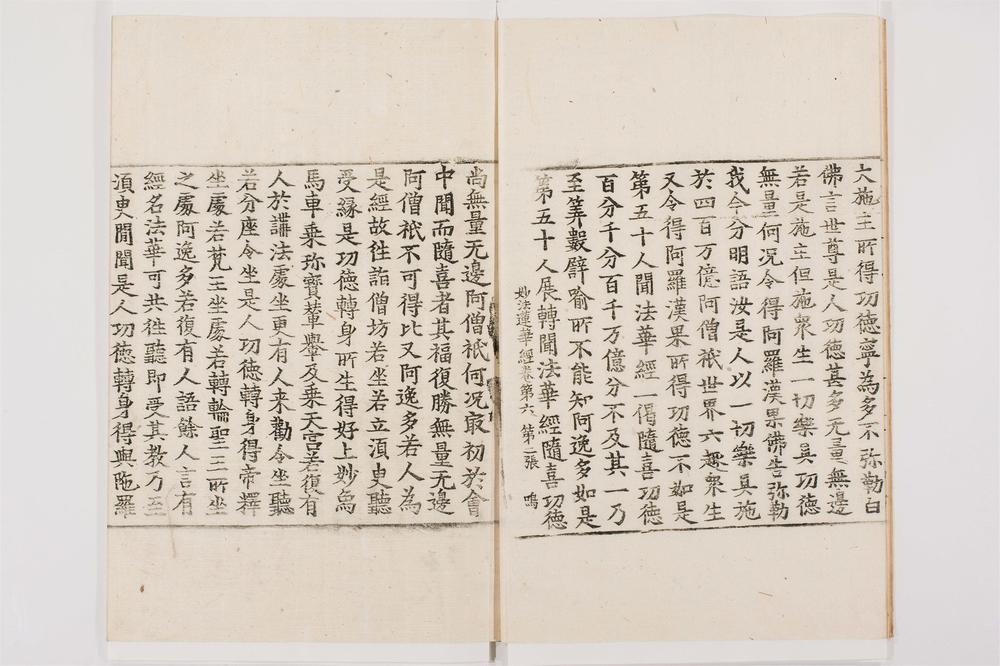 大施主所得功德寧為多不弥勒白
佛言世尊是人功德甚多无量無邊
若是施主但施衆生一切樂具功德
無量何况令得阿羅漢果佛告弥勒
我今分明語汝是人以一切樂具施
於四百万億阿僧祇世界六趣衆生
又令得阿羅漢果所得功德不如是
第五十人聞法華經一偈隨喜功德
百分千分百千万億分不及其一乃
至筭數譬喻所不能知阿逸多如是
第五十人展轉聞法華經隨喜功德
妙法蓮華經卷第六 第二張 鳴
尚無量无邊阿僧祇何况㝡初於會
中聞而隨喜者其福復勝無量无邊
阿僧祇不可得比又阿逸多若人為
是經故往詣僧坊若坐若立湏臾聽
受緣是功德轉身所生得好上妙象
馬車乗珎寶輦轝及乗天宫若復有
人於講法處坐更有人来勸令坐聽
若分座令坐是人功德轉身得帝釋
坐處若梵王坐處若轉輪聖王所坐
之處阿逸多若復有人語餘人言有
經名法華可共往聽即受其教乃至
湏臾間聞是人功德轉身得與陁羅